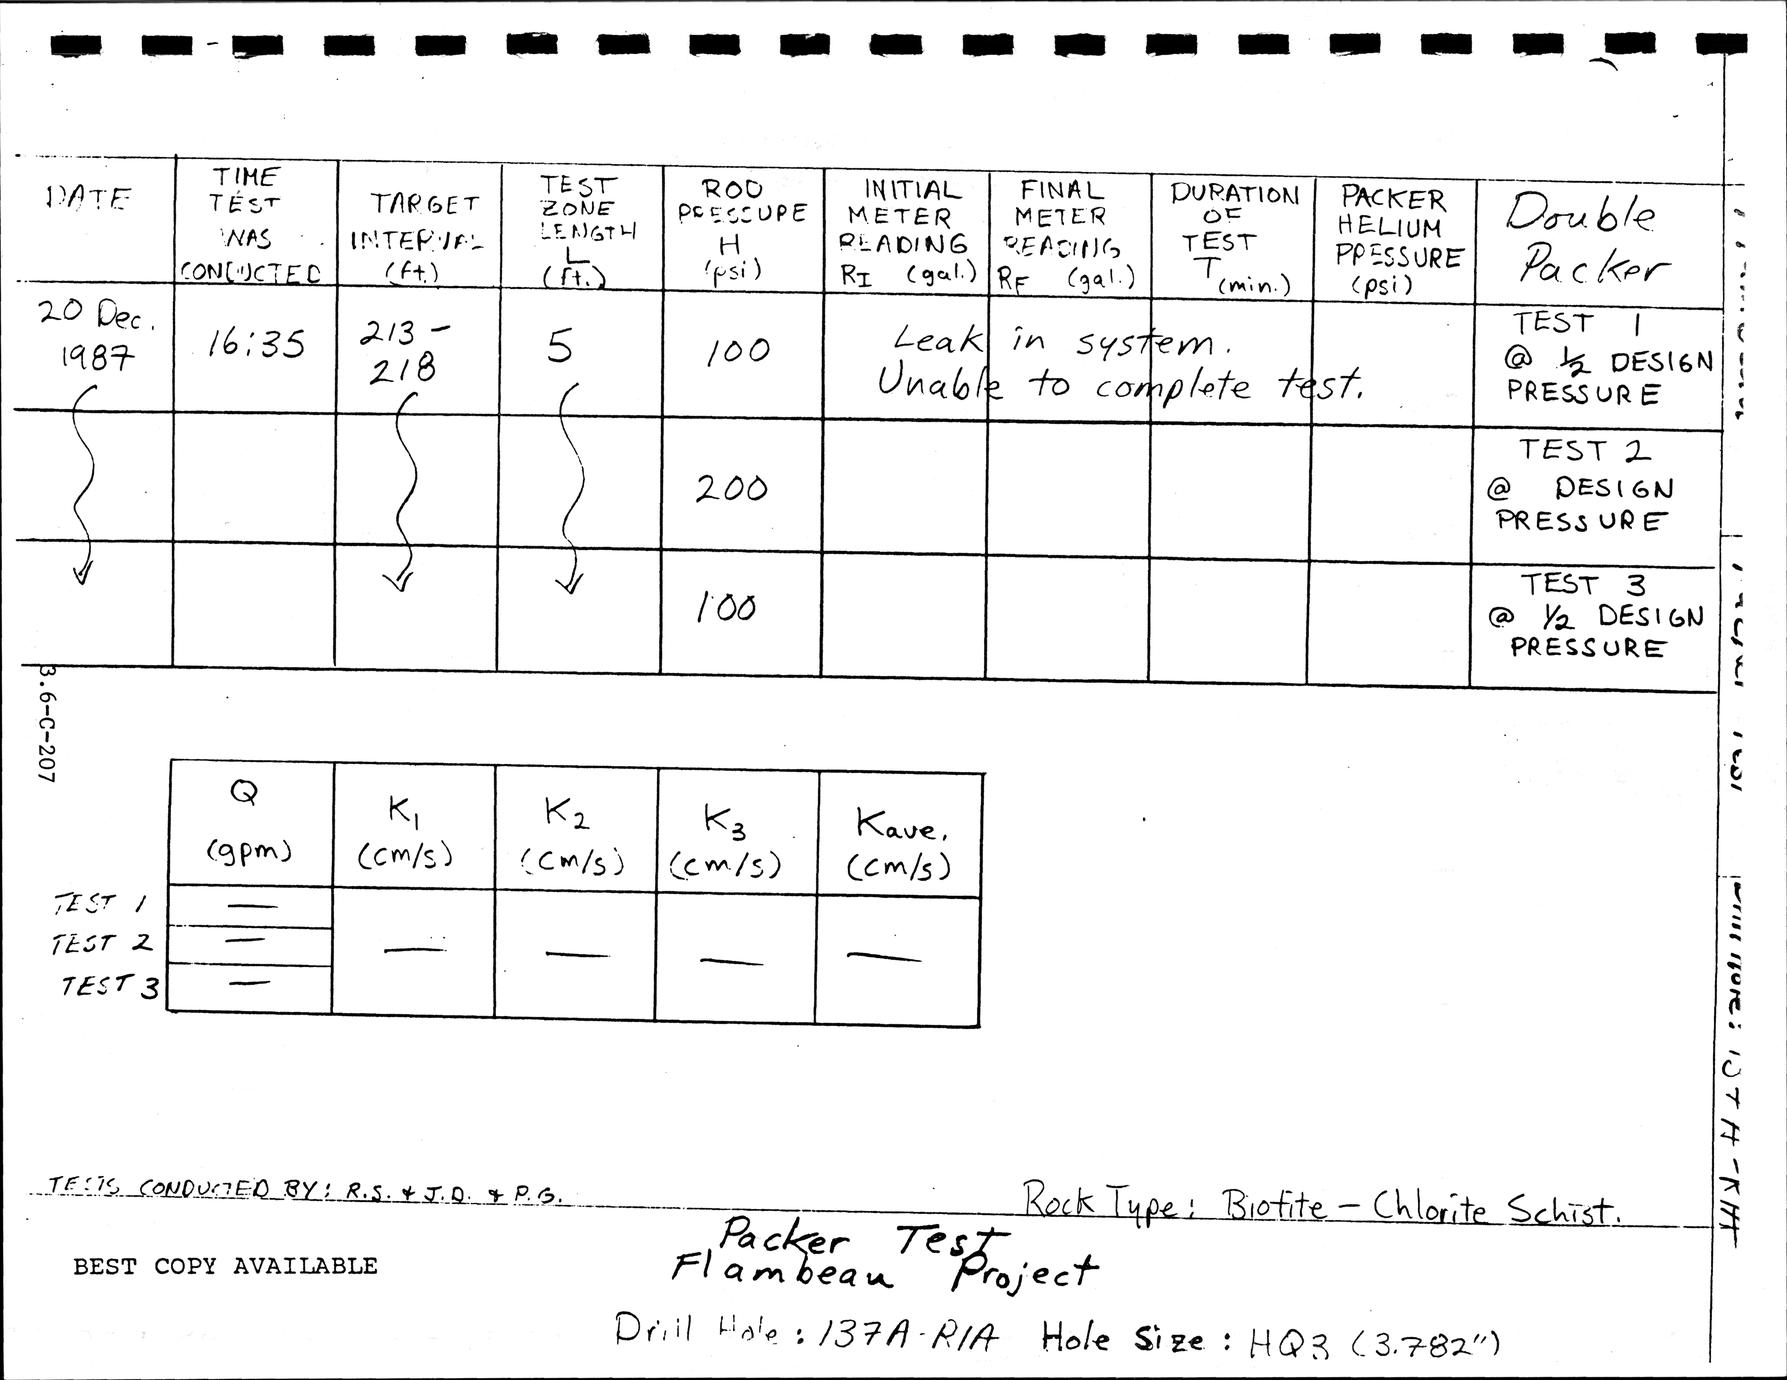 DATE
TIME
TEST
WAS
CONDUCTED
TARGET
INTERVAL
(ft.)
TEST
ZONE
LENGTH
L
(ft.)
ROD
PRESSURE
H
(psi)
INITIAL
METER
READING
RI (gal.)
FINAL
METER
READING
RF (gal.)
DURATION
OF
TEST
T (min.)
PACKER
HELIUM
PRESSURE
(psi)
Double
Packer
20 Dec.
1987
16:35
213-
218
5
100
Leak in system.
Unable to complete test.
TEST 1
@ 1/2 DESIGN
PRESSURE
200
TEST 2
@ DESIGN
PRESSURE
100
TEST 3
@ 1/2 DESIGN
PRESSURE
3.6-C-207
Q
(gpm)
K1
(cm/s)
K2
(cm/s)
K3
(cm/s)
Kave.
(cm/s)
TEST 1 —
TEST 2 — — — — —
TEST 3 —
TESTS CONDUCTED BY: R.S. & J.D. & P.G.
Rock Type: Biotite - Chlorite Schist.
Packer Test
Flambeau Project
BEST COPY AVAILABLE
Drill Hole: 137A-R1A Hole Size: HQ3 (3.782")